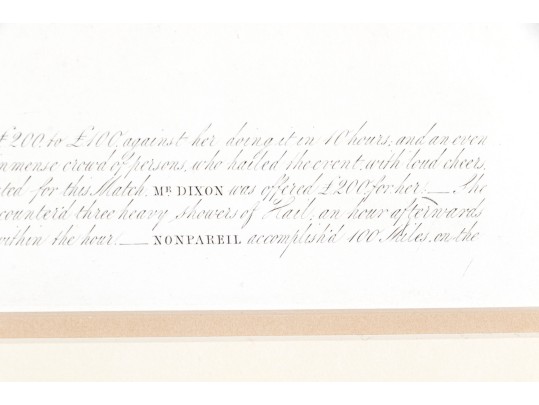 £200, to £100, against her doing it in 10 hours, and an even
mmense crowd of persons, who hailed the event, with loud cheers,
ted for this Match. MR. DIXON was offered £200 for her:— The
counter'd three heavy showers of Hail, an hour afterwards
within the hour.— NONPAREIL accomplish'd 100 Miles, on the